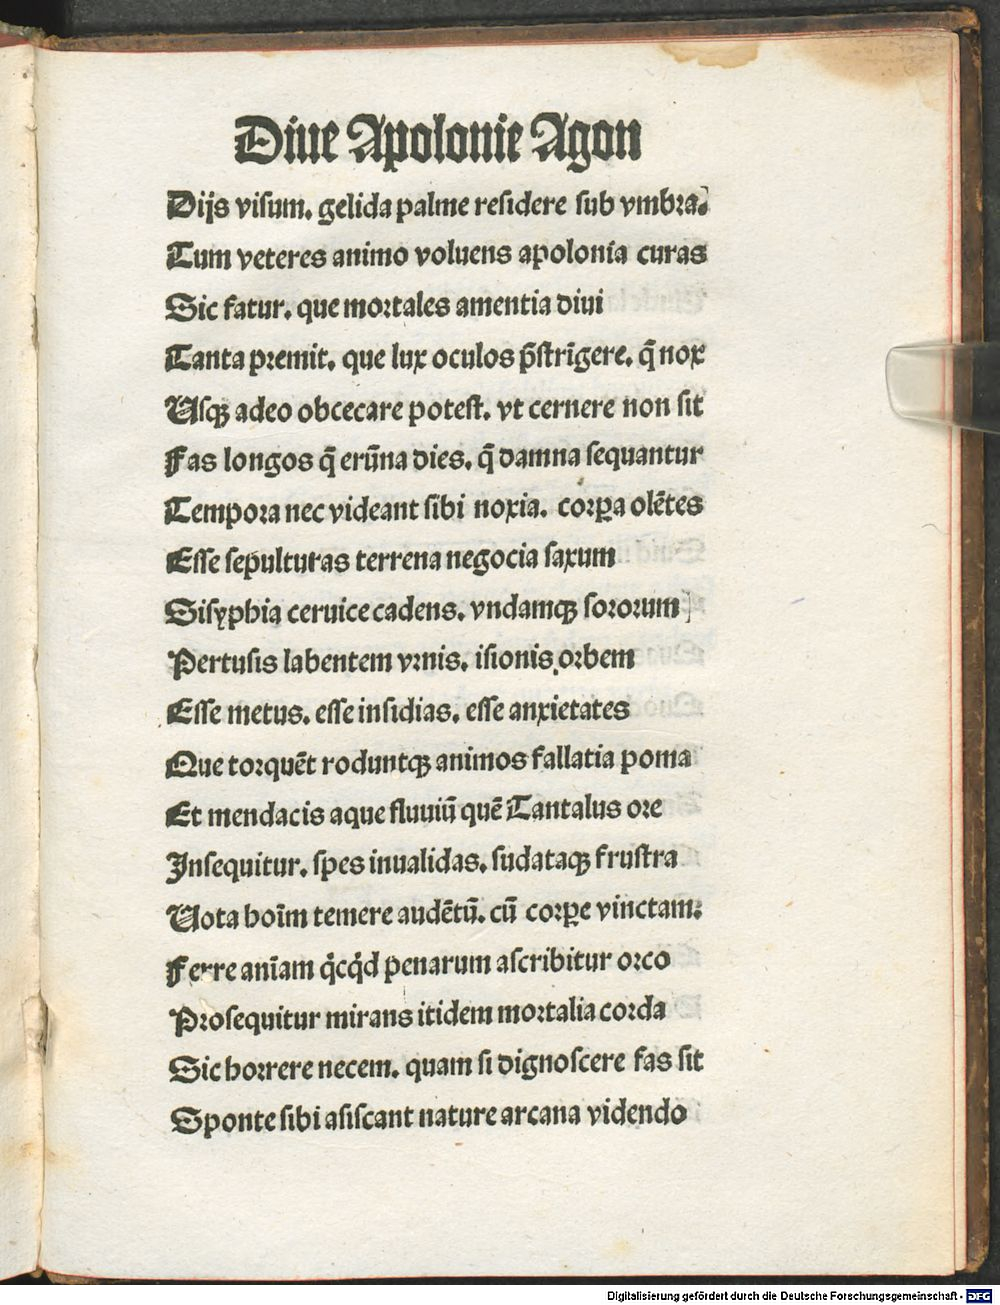 Diue Apolonie Agon
Dijs visum. gelida palme residere sub vmbra.
Tum veteres animo voluens apolonia curas
Sic fatur. que mortales amentia diui
Tanta premit. que lux oculos p̄strīgere. q̄ nox
Usqꝫ adeo obcecare potest. vt cernere non sit
Fas longos q̄ erūna dies. q̄ damna sequantur
Tempora nec videant sibi noxia. corꝑa olētes
Esse sepulturas terrena negocia saxum
Sisyphia ceruice cadens. vndamqꝫ sororum
Pertusis labentem vrnis. isionis orbem
Esse metus. esse insidias. esse anxietates
Que torquēt roduntqꝫ animos fallatia poma
Et mendacis aque fluuiū quē Tantalus ore
Insequitur. spes inualidas. sudataqꝫ frustra
Uota hoīm temere audētū. cū corꝑe vinctam.
Ferre anīam q̇cq̇d penarum ascribitur orco
Prosequitur mirans itidem mortalia corda
Sic horrere necem. quam si dignoscere fas sit
Sponte sibi asiscant nature arcana videndo
Digitalisierung gefördert durch die Deutsche Forschungsgemeinschaft - DFG